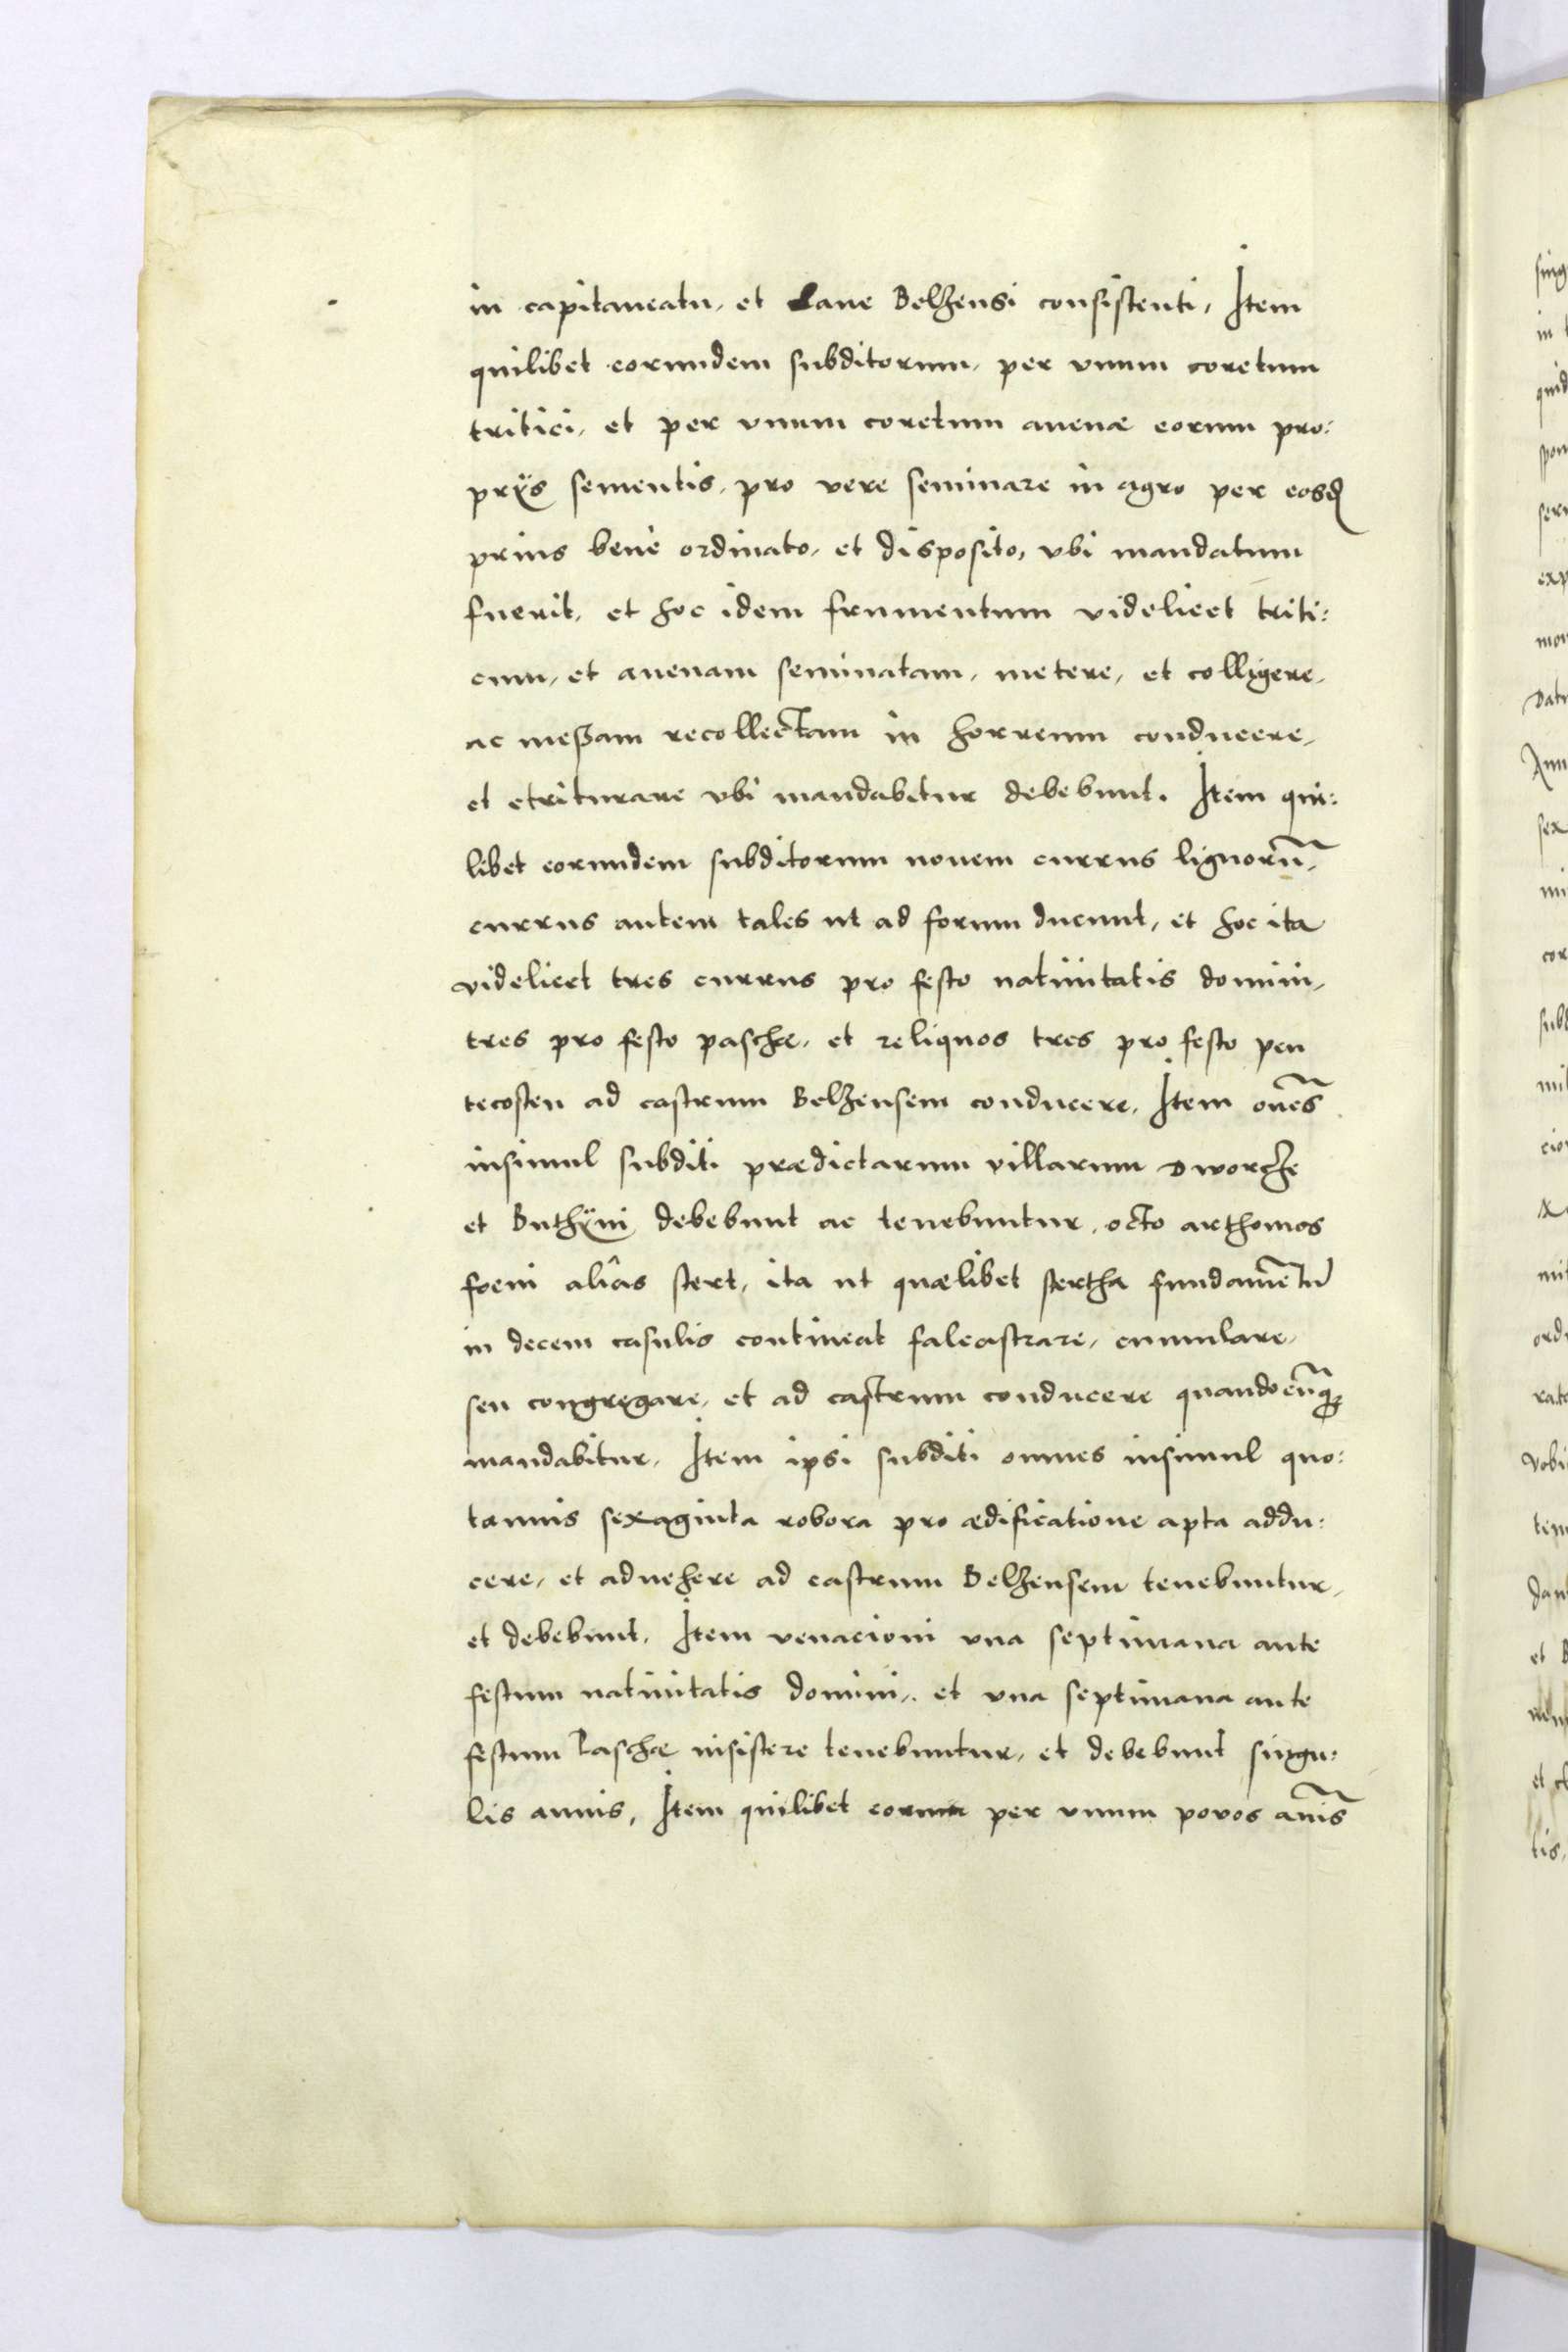 in capitaneatu, et Lane Belzensi consistenti, Item
quilibet eorundem subditorum, per vnum coretum
tritici, et per vnum coretum auenæ eorum pro:
prÿs sementis, pro vere seminare in agro per eosd
prius bene ordinato, et disposito, vbi mandatum
fuerit, et hoc idem frumentum videlicet triti:
cum, et auenam seminatam, metere, et colligere,
ac meßam recollectam in horreum conducere,
et etriturare vbi mandabitur debebunt. Item qui:
libet eorundem subditorum nouem currus lignorũ,
currus autem tales ut ad forum ducunt, et hoc ita
videlicet tres currus pro festo natiuitatis domini,
tres pro festo paschæ, et reliquos tres pro festo pen
tecosten ad castrum Belzensem conducere, Item oñes
insimul subditi prædictarum villarum Dworcze
et Buthÿni debebunt ac tenebuntur, octo arthomos
foeni aliâs stert, ita ut quælibet stertha fundamẽtũ
in decem casulis contineat falcastrare, cumulare,
seu congregare, et ad castrum conducere quandocũq
mandabitur, Item ipsi subditi omnes insimul quo:
tannis sexaginta robora pro ædificatione apta addu:
cere, et aduehere ad castrum Belzensem tenebuntur,
et debebunt, Item venacioni vna septimana ante
festum natiuitatis domini, et vna septimana ante
festum Paschæ insistere tenebuntur, et debebunt singu:
lis annis, Item quilibet eorum per vnum povos añis